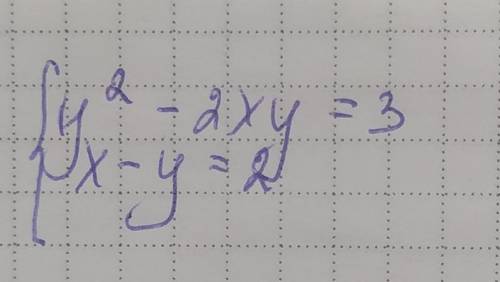 y² - 2xy = 3
x - y = 2